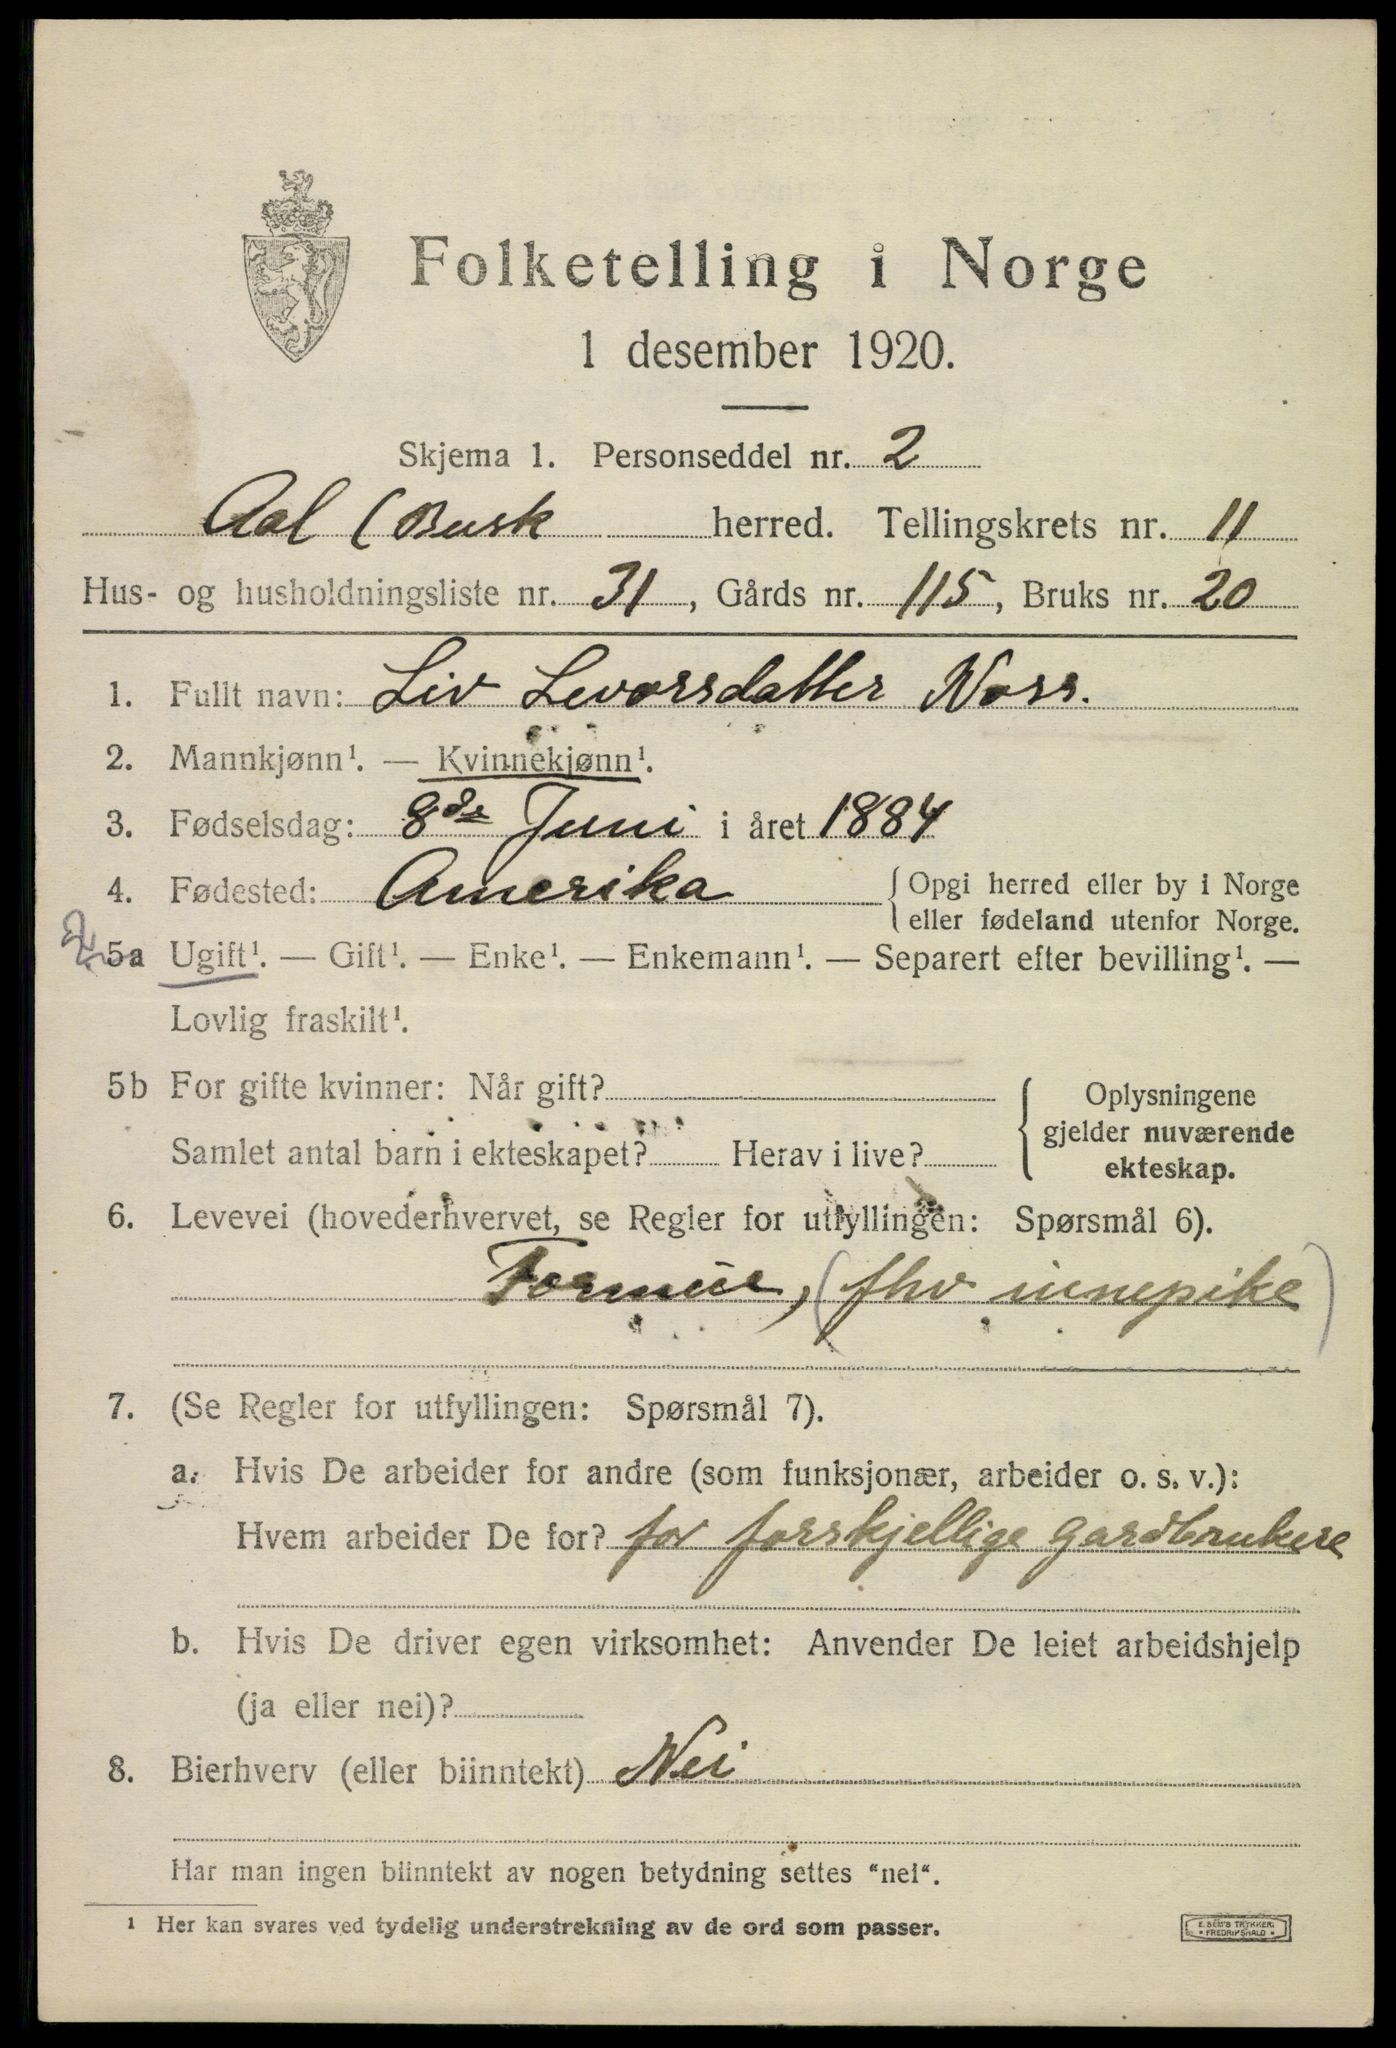 Folketelling i Norge
1 desember 1920.
Skjema 1. Personseddel nr. 2
Aal (Busk herred. Tellingskrets nr. 11
Hus- og husholdningsliste nr. 31, Gårds nr. 115, Bruks nr. 20
1. Fullt navn: Liv Levorsdatter Noss.
2. Mannkjønn¹. — Kvinnekjønn¹.
3. Fødselsdag: 8de Juni i året 1884
4. Fødested: Amerika {Opgi herred eller by i Norge
eller fødeland utenfor Norge.
5a Ugift¹. — Gift¹. — Enke¹. — Enkemann¹. — Separert efter bevilling¹. —
Lovlig fraskilt¹.
5b For gifte kvinner: Når gift?
Samlet antal barn i ekteskapet? Herav i live?
{Oplysningene
gjelder nuværende
ekteskap.
6. Levevei (hovederhvervet, se Regler for utfyllingen: Spørsmål 6).
Formue, (fhv innepike)
7. (Se Regler for utfyllingen: Spørsmål 7).
a. Hvis De arbeider for andre (som funksjonær, arbeider o. s. v.):
Hvem arbeider De for? for forskjellige gardbrukere
b. Hvis De driver egen virksomhet: Anvender De leiet arbeidshjelp
(ja eller nei)?
8. Bierhverv (eller biinntekt) Nei
Har man ingen biinntekt av nogen betydning settes “nei“.
¹ Her kan svares ved tydelig understrekning av de ord som passer.
E. SEM'S TRYKKERI
FREDRIKSHALD